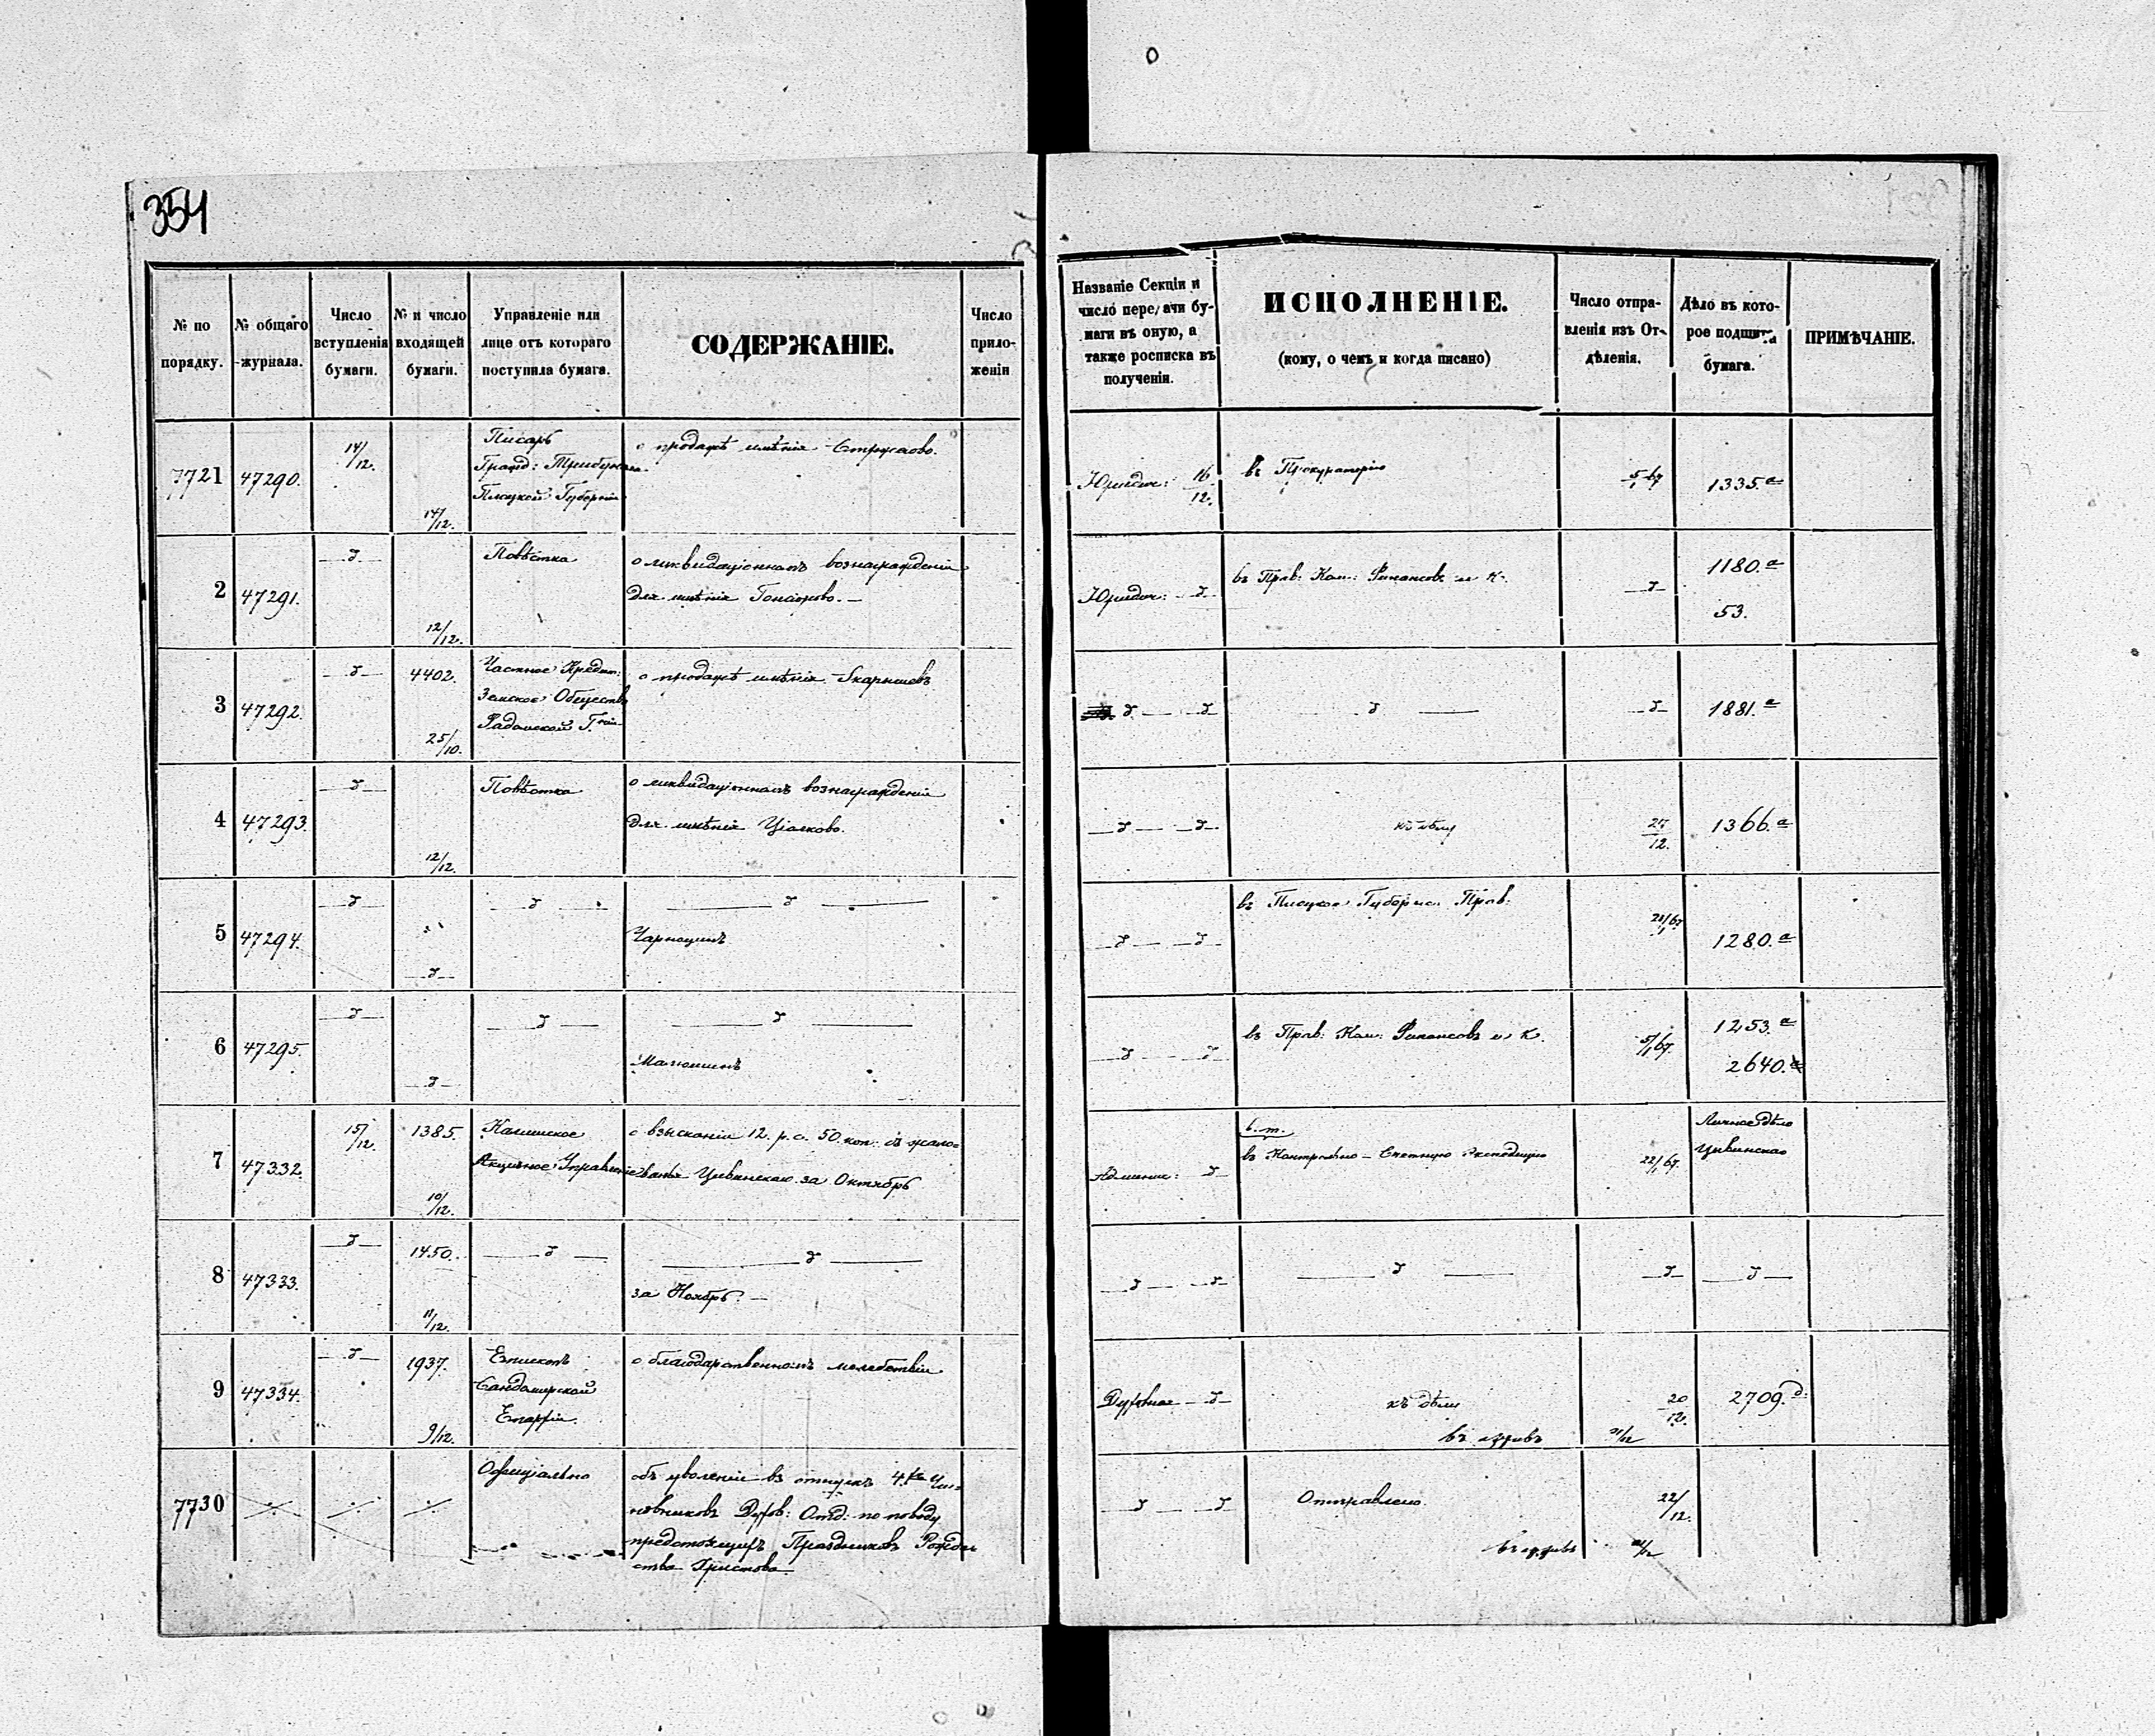 354
№ по порядку.
№ общаго журнала.
Число вступленія бумаги.
№ и число входящей бумаги.
Управленіе или лице отъ котораго поступила бумага.
СОДЕРЖАНІЕ.
Число приложеній
Названіе Секціи и число передачи бумаги въ оную, а также росписка въ полученіи.
ИСПОЛНЕНІЕ.
(кому, о чемъ и когда писано)
Число отправленія изъ Отдѣленія.
Дѣло въ которое подшита бумага.
ПРИМѢЧАНІЕ.
7721 47290. 14/12. 14/12.
Писарь
Гражд: Трибунала
Плоцкой Губерніи
о продажѣ имѣнія
Юридич: 16/12.
въ Прокураторію
5/1 67
1335.а
2 47291. 12/12.
Повѣстка
о ликвидаціонномъ вознагражденіи
для имѣнія
Юридич:
въ Прав: Ком: Финансовъ и К.
1180.а
53.
3 47292. 4402. 25/10.
Частное Кредит:
Земское Общество
Радомской Г
о продажѣ имѣнія Скарышевъ
1881.а
4 47293. 12/12.
Повѣстка
о ликвидаціонномъ вознагражденіи
для имѣнія Ціолково.
къ дѣлу
12.
1366.а
5 47294.
въ Плоцкое Губерн. Прав.
1280.а
6 47295.
въ Прав: Ком: Финансовъ и К.
5/1 67.
1253.а
2640.а
7 47332. 15/12. 1385. 10/12.
Калишское
Акцизное Управленіе
о взысканіи 12. р. с. 50. коп. съ жало-
ванья Цивинскаго за Октябрь
Админис:
в. т.
въ Контрольно-Счетную Экспедицію
22/1 67.
Личное дѣло
Цивинскаго
8 47333. 1450. 11/12.
за Ноябрь.
9 47334. 1937. 9/12.
Епископъ
Сандомирской
Епархіи.
о благодарственномъ молебствіи
Духовная
къ дѣлу
20/12.
2709.д.
въ архивъ
7730
Офиціально
объ уволеніи въ отпускъ 4.хъ Чи-
новниковъ Духов: Отд: по поводу
предстоящихъ Праздниковъ Рожде-
ства Христова
Отправлено.
22/12.
въ архивъ